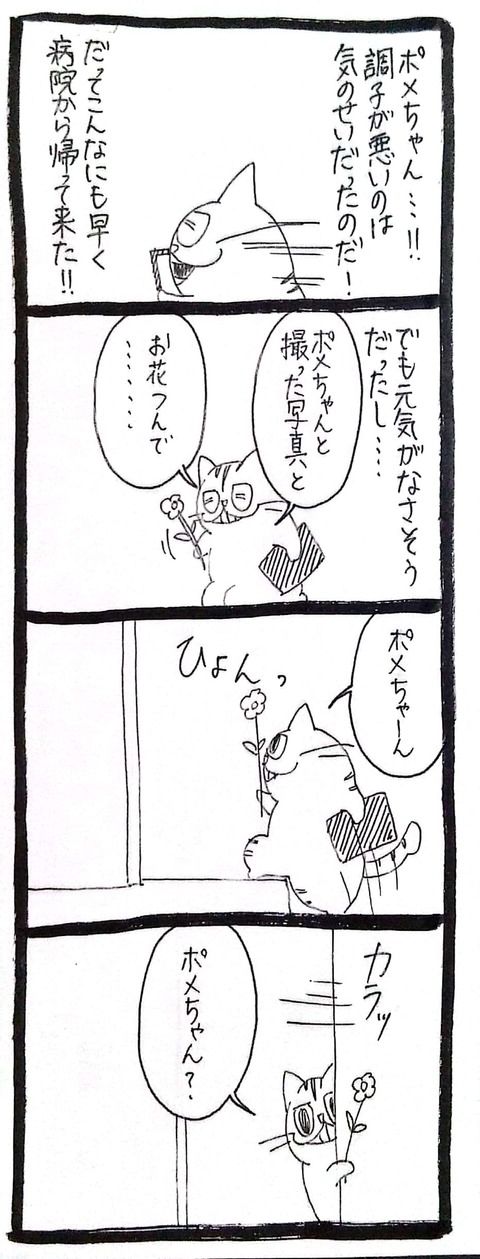 ポメちゃん…!!
調子が悪いのは
気のせいだったのだ!
だってこんなにも早く
病院から帰って来た!!
でも元気がなさそう
だったし……
ポメちゃんと
撮った写真と
お花つんで
………
ポメちゃーん
ひょんっ
カラッ
ポメちゃん?